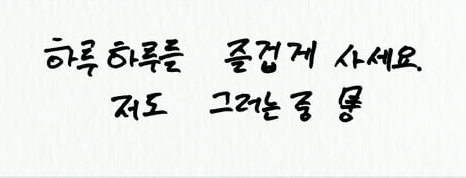 하루하루를 즐겁게 사세요.
저도 그러는 중